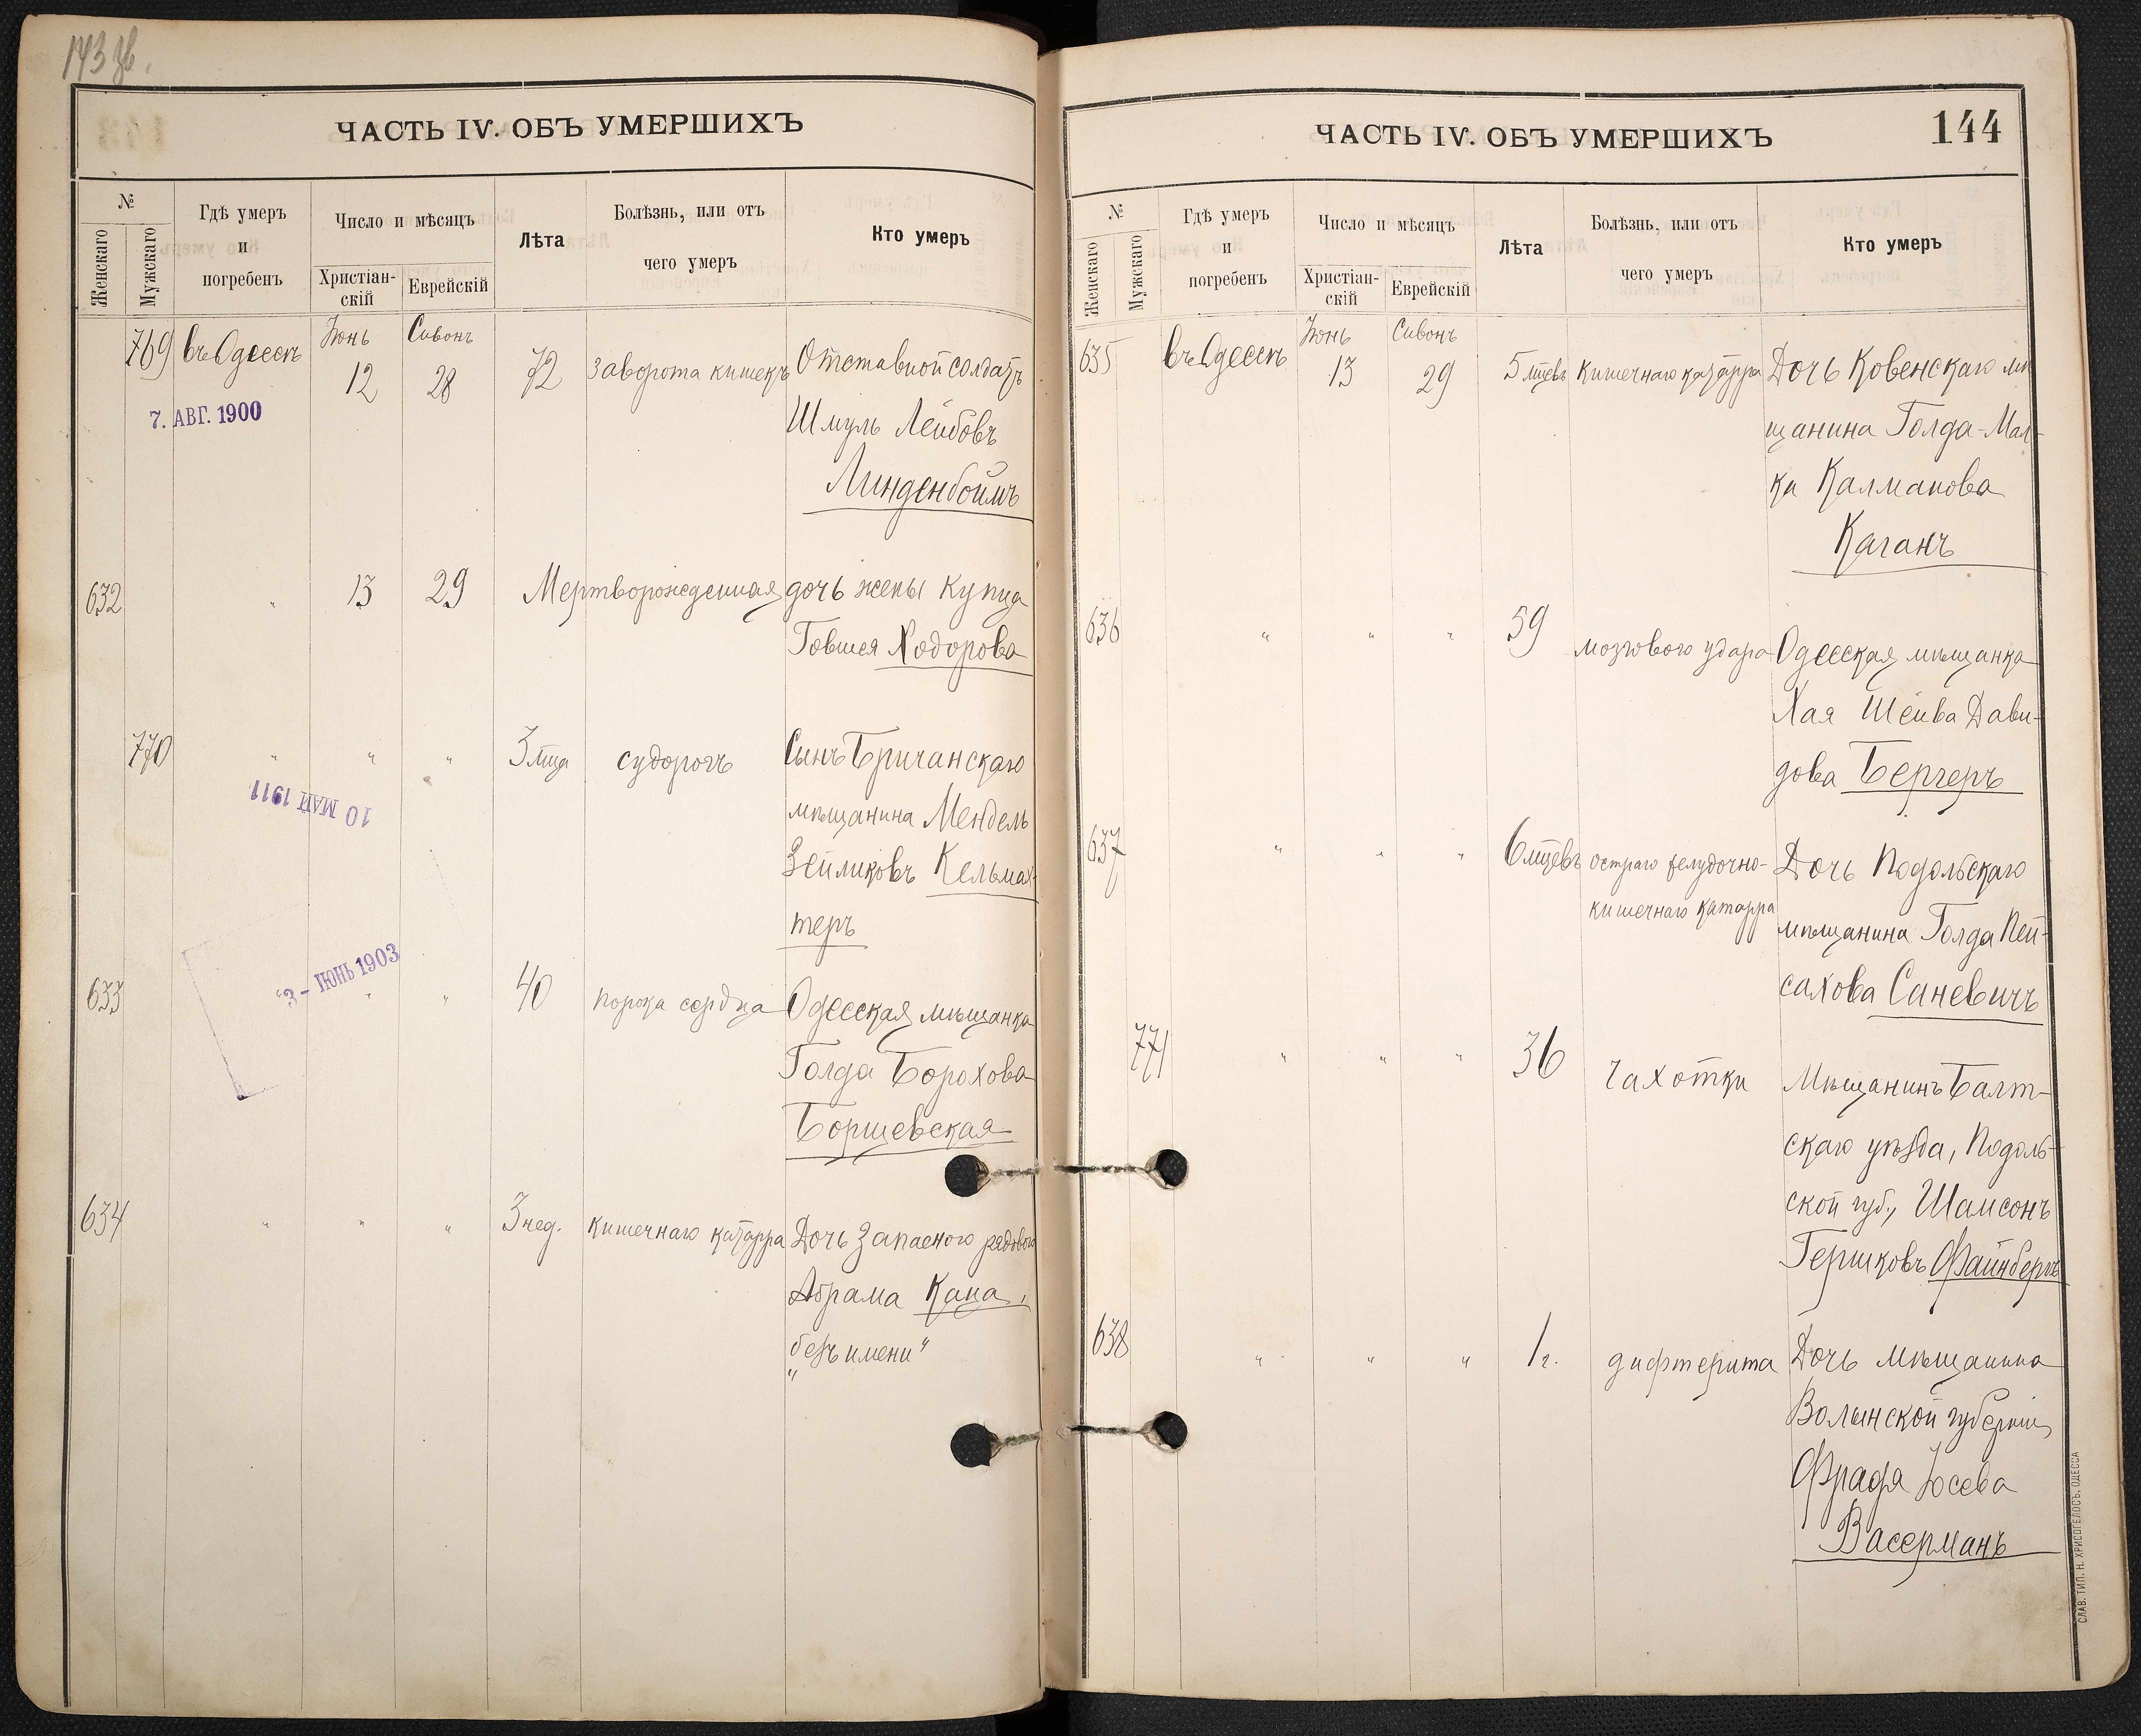 143 зв.
ЧАСТЬ IV. ОБЪ УМЕРШИХЪ
№
Женскаго
Мужскаго
Гдѣ умеръ
и
погребенъ
Число и мѣсяцъ
Христіан-
скій
Еврейскій
Лѣта
Болѣзнь, или отъ
чего умеръ
Кто умеръ
769 въ Одессѣ Іюнь 12 Сивонъ 28 72 заворота кишекъ Отставной солдатъ
7. АВГ. 1900
Шмуль Лейбовъ
Линденбоймъ
632 " 13 29 Мертворожденная дочь жены купца
Говшея Ходорова
770 " " " 3 мца судорогъ Сынъ Бричанскаго
10 МАЙ 1911
мѣщанина Мендель
Зейликовъ Кельмах-
теръ
3 - ІЮНЬ 1903
633 " " " 40 порока сердца Одесская мѣщанка
Голда Борохова
Борщевская
634 " " " 3 нед. кишечнаго катарра Дочь запасного рядового
Абрама Кана,
"безъ имени"
ЧАСТЬ IV. ОБЪ УМЕРШИХЪ
144
№
Женскаго
Мужскаго
Гдѣ умеръ
и
погребенъ
Число и мѣсяцъ
Христіан-
скій
Еврейскій
Лѣта
Болѣзнь, или отъ
чего умеръ
Кто умеръ
635 въ Одессѣ Іюнь 13 Сивонъ 29 5 мцевъ кишечнаго катарра Дочь Ковенскаго мѣ
щанина Голда-Мал-
ка Калманова
Каганъ
636 " " " 59 мозгового удара Одесская мѣщанка
Хая Шейва Дави-
дова Бергеръ
637 " " " 6 мцевъ остраго желудочно- Дочь Подольскаго
кишечнаго катарра мѣщанина Голда Пей-
сахова Саневичъ
771 " " " 36 чахотки Мѣщанинъ Балт-
скаго уѣзда, Подоль-
ской губ., Шамсонъ
Гершковъ Файнбергъ
638 " " " 1 г. дифтерита Дочь мѣщанина
Волынской губерніи
Фрадя Іосева
Васерманъ
СЛАВ. ТИП. Н. ХРИСОГЕЛОСЪ, ОДЕССА